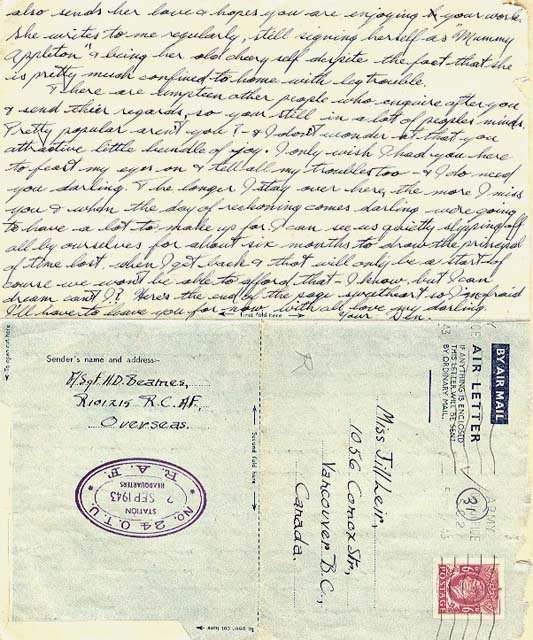 also sends her love & hopes you are enjoying your work.
She writes to me regularly, still signing herself as "Mummy
Appleton" & being her old cheery self despite the fact that she
is pretty much confined to home with leg trouble.
There are umpteen other people who enquire after you
& send their regards, so your still in a lot of peoples minds.
Pretty popular aren't you? - & I don't wonder at that you
attractive little bundle of joy. I only wish I had you here
to feast my eyes on & tell all my troubles too - & I do need
you darling. The longer I stay over here, the more I miss
you & when the day of reckoning comes darling we're going
to have a lot to make up for. I can see us quietly slipping off
all by ourselves for about six months to draw the principal
of time lost, when I get back & that will only be a start - of
course we won't be able to afford that - I know, but I can
dream can't I? Here's the end of the page sweetheart so I'm afraid
I'll have to leave you for now with all love my darling.
Your Den.
First fold here
To open cut here
Sender's name and address:-
F/Sgt. H.D. Beames,
R101215 R.C.A.F.,
Overseas.
No. 24 O.T.U.
STATION
2 SEP 1943
HEADQUARTERS
R.A.F.
Second fold here
To open cut here
R
BY AIR MAIL
AIR LETTER
IF ANYTHING IS ENCLOSED
THIS LETTER WILL BE SENT
BY ORDINARY MAIL.
Miss Jill Leir,
1056 Comox Str,
Vancouver B.C.,
Canada.
43
ARMY
POSTAGE
6D